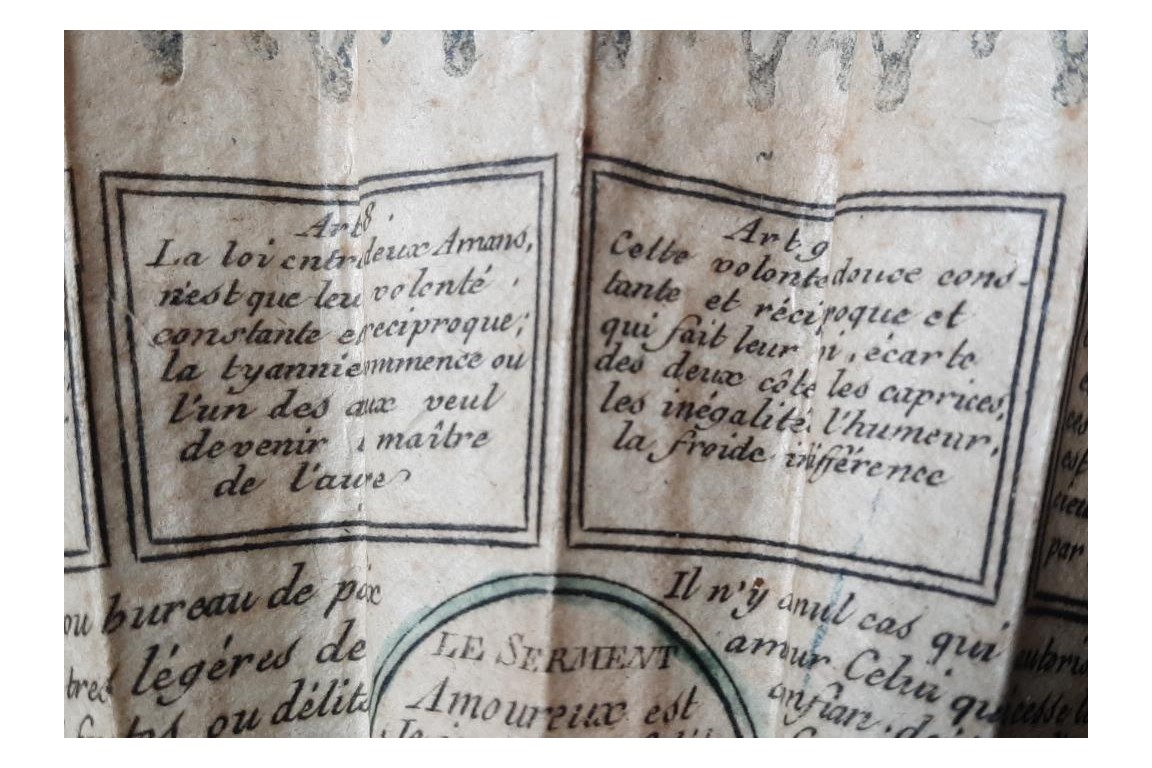 Art 8
La loi entre deux Amans,
n'est que leur volonté
constante et reciproque;
la tyannie commence ou
l'un des deux veul
devenir maître
de l'autre
Art 9
Cette volonte douce cons-
tante et récipoque et
qui fait leur loi, écarte
des deux côtés les caprices,
les inégalités l'humeur,
la froide indifférence
ou bureau de paix
légéres de
ou délits
LE SERMENT
Amoureux est
Il n'y a nul cas qui
amour. Celui qui
par